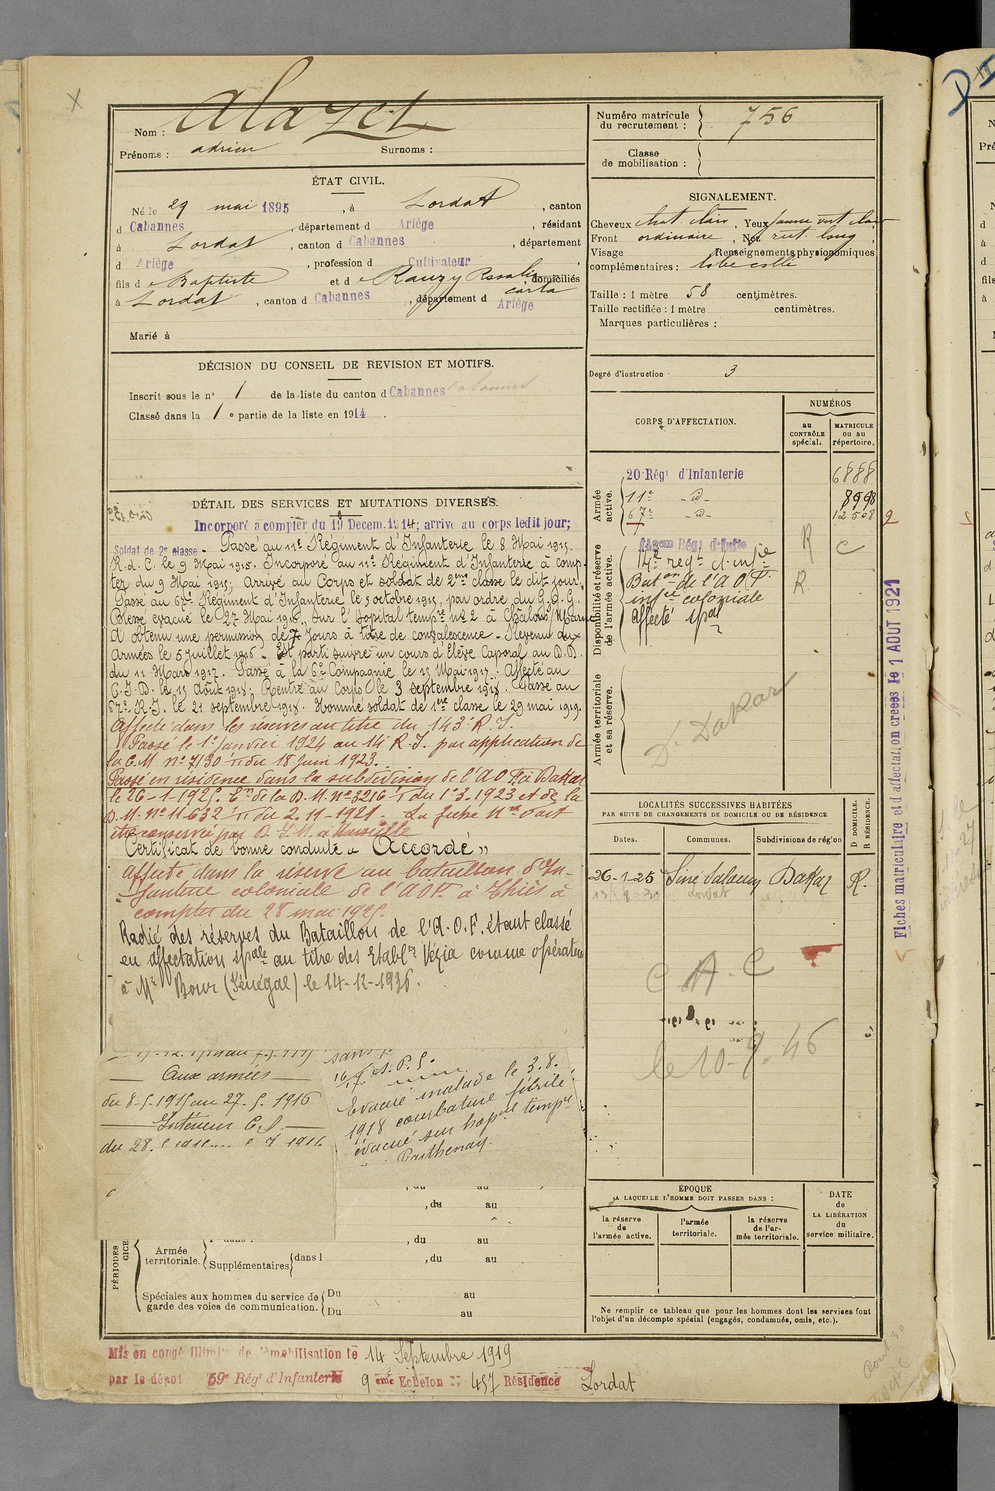 Nom : Alazet
Prénoms : adrien Surnoms :
Numéro matricule du recrutement : 756
Classe de mobilisation :
ÉTAT CIVIL.
Né le 29 mai 1895, à Lordat, canton
d Cabannes, département d Ariège, résidant
à Lordat, canton d Cabannes, département
d Ariège, profession d Cultivateur
fils d Baptiste et d Rauzy Rosalie domiciliés
à Lordat, canton d Cabannes, département d Ariège
Marié à
SIGNALEMENT.
Cheveux chat. clair, Yeux jaune vert clair
Front ordinaire, Nez rect. long,
Visage Renseignements physionomiques
complémentaires : lobe collé
Taille : 1 mètre 58 centimètres.
Taille rectifiée : 1 mètre centimètres.
Marques particulières :
Degré d'instruction 3
DÉCISION DU CONSEIL DE REVISION ET MOTIFS.
Inscrit sous le n° 1 de la liste du canton d Cabannes
Classé dans la 1e partie de la liste en 1914.
CORPS D'AFFECTATION.
NUMÉROS
au CONTRÔLE spécial.
MATRICULE ou au répertoire.
Armée active.
20 Régt d'Infanterie 6888
11e -d- 8998
67e -d- 12508
Disponibilité et réserve de l'armée active.
14e regt d'infie
Baton de l'A O F.
infie coloniale
Affecté spal
R C
R.
Armée territoriale et sa réserve.
D. Dakar
DÉTAIL DES SERVICES ET MUTATIONS DIVERSES.
Incorporé à compter du 19 Décem. 1914; arrivé au corps ledit jour;
Soldat de 2e classe - Passé au 11e Régiment d'Infanterie le 8 Mai 1915.
R.d.C. le 9 Mai 1915. Incorporé au 11e Régiment d'Infanterie à comp-
ter du 9 Mai 1915; Arrivé au Corps et soldat de 2ème classe le dit jour.
Passé au 67e Régiment d'Infanterie le 5 octobre 1915, par ordre du G.Q.G.
Blessé évacué le 27 Mai 1916, sur l'hopital tempre no 2 à Chalons s/Marne
A obtenu une permission de 7 jours à titre de convalescence - Revenu aux
Armées le 5 juillet 1916 - Est parti suivre un cours d'Elève Caporal au D.D.
du 11 Mars 1917. Passé à la 6e Compagnie le 15 Mai 1917. Affecté au
C.I.D. le 15 Août 1918; Rentré au Corps le 3 septembre 1918. Passé au
R.I. le 21 septembre 1918. Nommé soldat de 1ère classe le 29 mai 1919.
Affecté dans les réserves au titre du 143e R.I.
Passé le 1er janvier 1924 au 14e R.I. par application de
la C.M. no 7130 du 18 juin 1923.
Passé en résidence dans la subdivision de l'A O F à Dakar
le 26-1-1925. Con de la D.M. no 3216 du 1er.3.1923 et de la
D.M. no 11.632 du 2.11-1921 - La fiche doit
être conservée par
Certificat de bonne conduite « Accordé »
Affecté dans la réserve au bataillon d'In-
fanterie coloniale de l'AOF. à Thiès à
compter du 28 mai 1925.
Radié des réserves du Bataillon de l'A.O.F. étant classé
en affectation spale au titre des Etablts Vézia comme opérateur
à Mr Bour (Sénégal) le 14-12-1936.
Aux armées
du 8-5-1915 au 27-5-1916
Intérieur C.S.
du 28.
Evacué malade le 3.8.
1918 courbature fébrile
évacué sur hopal tempre
Parthenay.
LOCALITÉS SUCCESSIVES HABITÉES
PAR SUITE DE CHANGEMENTS DE DOMICILE OU DE RÉSIDENCE
Dates. Communes. Subdivisions de région D DOMICILE. R RÉSIDENCE.
26-1-25 Sine Saloum Dakar R.
Lordat
C A. C
le 10-9-46
Fiches matriculaire et d'affectation créées le 1 AOUT 1921
, du au
, du au
PÉRIODES
Armée territoriale. Supplémentaires dans l , du au
Spéciales aux hommes du service de garde des voies de communication. Du au
Du au
ÉPOQUE
A LAQUELLE L'HOMME DOIT PASSER DANS :
la réserve de l'armée active.
l'armée territoriale.
la réserve de l'armée territoriale.
DATE de LA LIBÉRATION du service militaire.
Ne remplir ce tableau que pour les hommes dont les services font
l'objet d'un décompte spécial (engagés, condamnés, omis, etc.).
Mis en congé illimité de démobilisation le 14 Septembre 1919
par le dépôt 59e Régt d'Infanterie 9 ème Echelon n° 457 Résidence Lordat